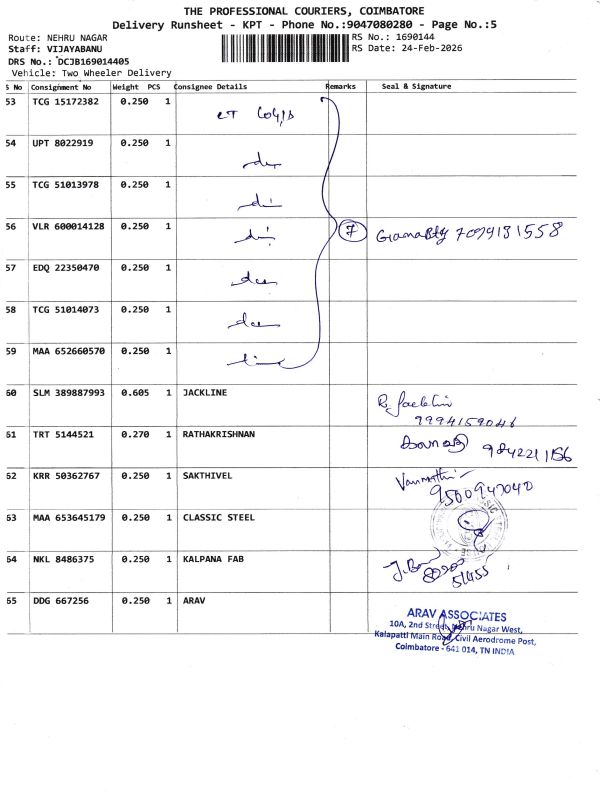 THE PROFESSIONAL COURIERS, COIMBATORE
Delivery Runsheet - KPT - Phone No.:9047080280 - Page No.:5
Route: NEHRU NAGAR
RS No.: 1690144
Staff: VIJAYABANU
RS Date: 24-Feb-2026
DRS No.: DCJB169014405
Vehicle: Two Wheeler Delivery
S No Consignment No Weight PCS Consignee Details Remarks Seal & Signature
53 TCG 15172382 0.250 1
54 UPT 8022919 0.250 1
55 TCG 51013978 0.250 1
56 VLR 600014128 0.250 1 7 7099131558
57 EDQ 22350470 0.250 1
58 TCG 51014073 0.250 1
59 MAA 652660570 0.250 1
60 SLM 389887993 0.605 1 JACKLINE R. Jacklin
9994159046
61 TRT 5144521 0.270 1 RATHAKRISHNAN 9842211156
62 KRR 50362767 0.250 1 SAKTHIVEL Vanmathi
9500947040
63 MAA 653645179 0.250 1 CLASSIC STEEL
64 NKL 8486375 0.250 1 KALPANA FAB
51455
65 DDG 667256 0.250 1 ARAV
ARAV ASSOCIATES
10A, 2nd Street, Nehru Nagar West,
Kalapatti Main Road, Civil Aerodrome Post,
Coimbatore - 641 014, TN INDIA